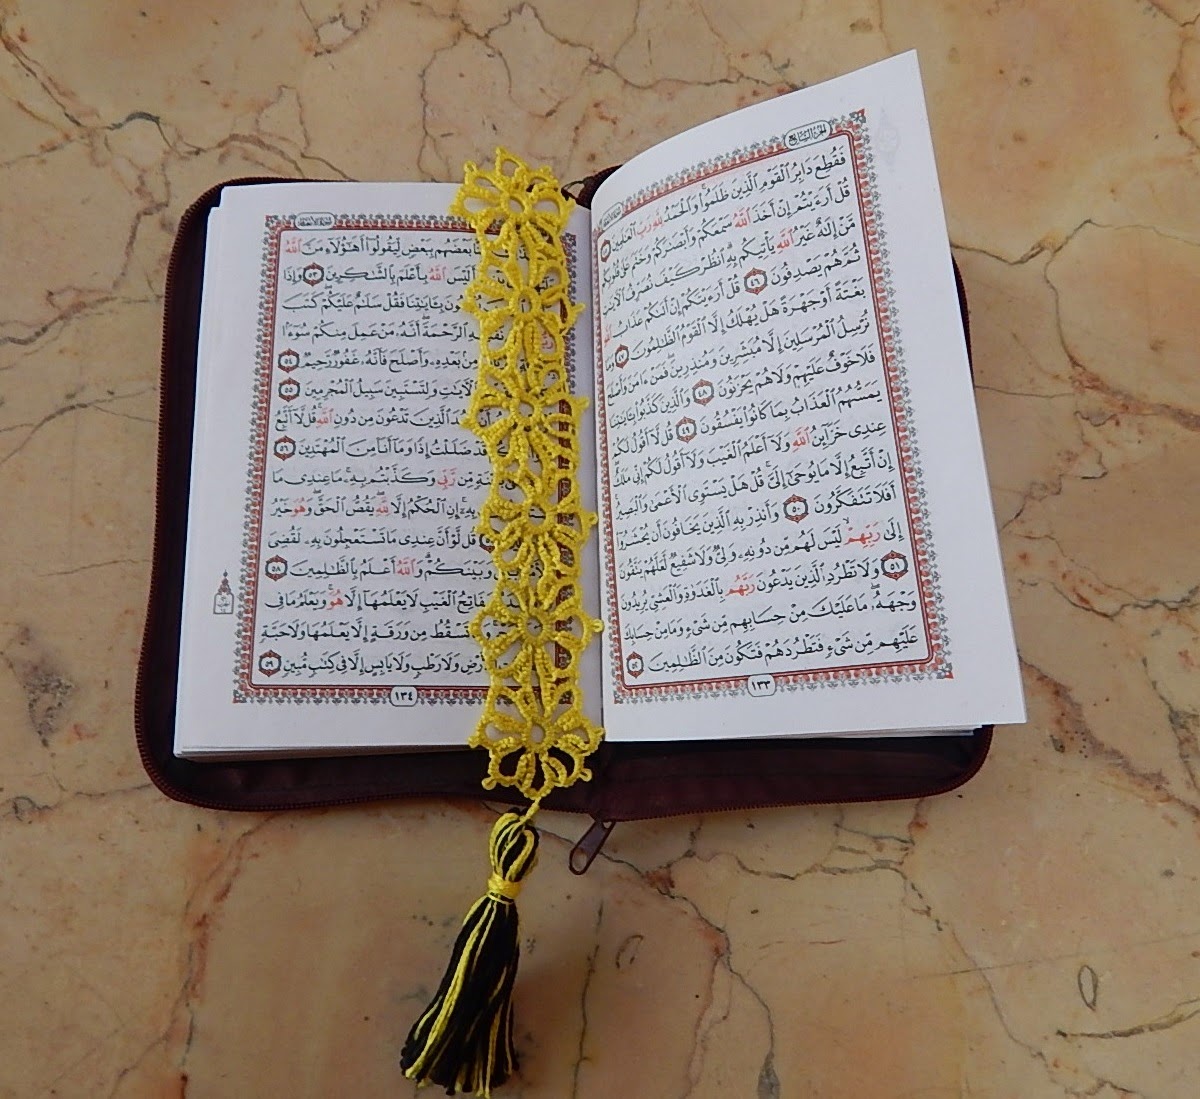 الجزء السابع
فَقُطِعَ دَابِرُ ٱلْقَوْمِ ٱلَّذِينَ ظَلَمُوا۟ وَٱلْحَمْدُ لِلَّهِ رَبِّ ٱلْعَٰلَمِينَ
قُلْ أَرَءَيْتُمْ إِنْ أَخَذَ ٱللَّهُ سَمْعَكُمْ وَأَبْصَٰرَكُمْ وَخَتَمَ عَلَىٰ قُلُوبِكُم
مَّنْ إِلَٰهٌ غَيْرُ ٱللَّهِ يَأْتِيكُم بِهِ ۗ ٱنظُرْ كَيْفَ نُصَرِّفُ ٱلْءَايَٰتِ
ثُمَّ هُمْ يَصْدِفُونَ ٤٦ قُلْ أَرَءَيْتَكُمْ إِنْ أَتَىٰكُمْ عَذَابُ ٱللَّهِ
بَغْتَةً أَوْ جَهْرَةً هَلْ يُهْلَكُ إِلَّا ٱلْقَوْمُ ٱلظَّٰلِمُونَ ٤٧ وَمَا
نُرْسِلُ ٱلْمُرْسَلِينَ إِلَّا مُبَشِّرِينَ وَمُنذِرِينَ ۖ فَمَنْ ءَامَنَ وَأَصْلَحَ
فَلَا خَوْفٌ عَلَيْهِمْ وَلَا هُمْ يَحْزَنُونَ ٤٨ وَٱلَّذِينَ كَذَّبُوا۟ بِـَٔايَٰتِنَا
يَمَسُّهُمُ ٱلْعَذَابُ بِمَا كَانُوا۟ يَفْسُقُونَ ٤٩ قُل لَّآ أَقُولُ لَكُمْ
عِندِى خَزَآئِنُ ٱللَّهِ وَلَآ أَعْلَمُ ٱلْغَيْبَ وَلَآ أَقُولُ لَكُمْ إِنِّى مَلَكٌ
إِنْ أَتَّبِعُ إِلَّا مَا يُوحَىٰٓ إِلَىَّ ۚ قُلْ هَلْ يَسْتَوِى ٱلْأَعْمَىٰ وَٱلْبَصِيرُ
أَفَلَا تَتَفَكَّرُونَ ٥٠ وَأَنذِرْ بِهِ ٱلَّذِينَ يَخَافُونَ أَن يُحْشَرُوٓا۟
إِلَىٰ رَبِّهِمْ ۙ لَيْسَ لَهُم مِّن دُونِهِۦ وَلِىٌّ وَلَا شَفِيعٌ لَّعَلَّهُمْ يَتَّقُونَ ٥١
وَلَا تَطْرُدِ ٱلَّذِينَ يَدْعُونَ رَبَّهُم بِٱلْغَدَوٰةِ وَٱلْعَشِىِّ يُرِيدُونَ
وَجْهَهُۥ ۖ مَا عَلَيْكَ مِنْ حِسَابِهِم مِّن شَىْءٍ وَمَا مِنْ حِسَابِكَ
عَلَيْهِم مِّن شَىْءٍ فَتَطْرُدَهُمْ فَتَكُونَ مِنَ ٱلظَّٰلِمِينَ ٥٢
١٣٣
بَعْضَهُم بِبَعْضٍ لِّيَقُولُوٓا۟ أَهَٰٓؤُلَآءِ مَنَّ ٱللَّهُ
أَلَيْسَ ٱللَّهُ بِأَعْلَمَ بِٱلشَّٰكِرِينَ ٥٣ وَإِذَا
بِـَٔايَٰتِنَا فَقُلْ سَلَٰمٌ عَلَيْكُمْ ۖ كَتَبَ
ٱلرَّحْمَةَ ۖ أَنَّهُۥ مَنْ عَمِلَ مِنكُمْ سُوٓءًۢا
مِنۢ بَعْدِهِۦ وَأَصْلَحَ فَأَنَّهُۥ غَفُورٌ رَّحِيمٌ ٥٤
ٱلْءَايَٰتِ وَلِتَسْتَبِينَ سَبِيلُ ٱلْمُجْرِمِينَ ٥٥
ٱلَّذِينَ تَدْعُونَ مِن دُونِ ٱللَّهِ ۚ قُل لَّآ أَتَّبِعُ
قَدْ ضَلَلْتُ إِذًا وَمَآ أَنَا۠ مِنَ ٱلْمُهْتَدِينَ ٥٦
مِّن رَّبِّى وَكَذَّبْتُم بِهِۦ ۚ مَا عِندِى مَا
بِهِۦٓ ۚ إِنِ ٱلْحُكْمُ إِلَّا لِلَّهِ ۖ يَقُصُّ ٱلْحَقَّ ۖ وَهُوَ خَيْرُ
قُل لَّوْ أَنَّ عِندِى مَا تَسْتَعْجِلُونَ بِهِۦ لَقُضِىَ
وَبَيْنَكُمْ ۗ وَٱللَّهُ أَعْلَمُ بِٱلظَّٰلِمِينَ ٥٨
مَفَاتِحُ ٱلْغَيْبِ لَا يَعْلَمُهَآ إِلَّا هُوَ ۚ وَيَعْلَمُ مَا فِى
تَسْقُطُ مِن وَرَقَةٍ إِلَّا يَعْلَمُهَا وَلَا حَبَّةٍ
وَلَا رَطْبٍ وَلَا يَابِسٍ إِلَّا فِى كِتَٰبٍ مُّبِينٍ ٥٩
١٣٤